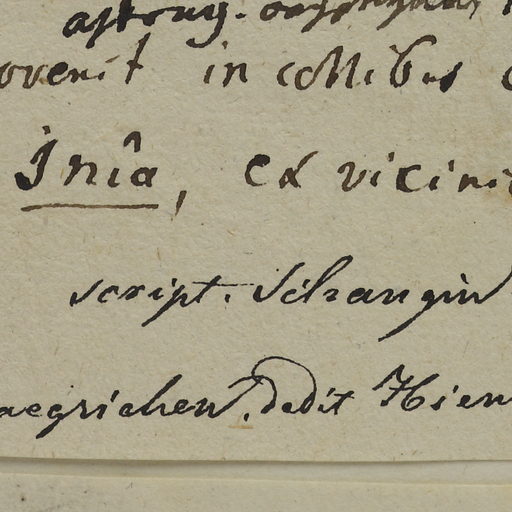 ovenit in collibus
Jnîa, ex vicini
script. Schangin
aegrichen. dedit Hien